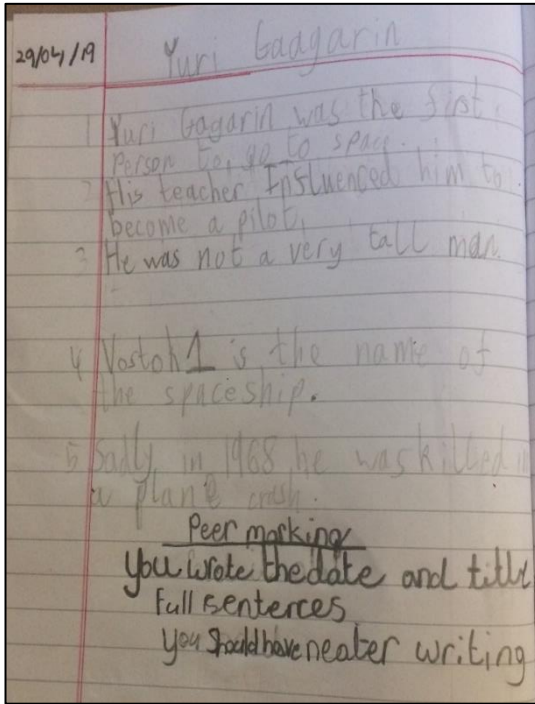 29/04/19
Yuri Gaagarin
1 Yuri Gagarin was the first
Person to, go to space.
2 His teacher Influenced him to
become a pilot.
3 He was not a very tall man
4 Vostoh 1 is the name of
the spaceship.
5 Sadly, in 1968 he was killed in
a plane crash.
Peer marking
You wrote the date and title
Full sentences
You Should have neater writing